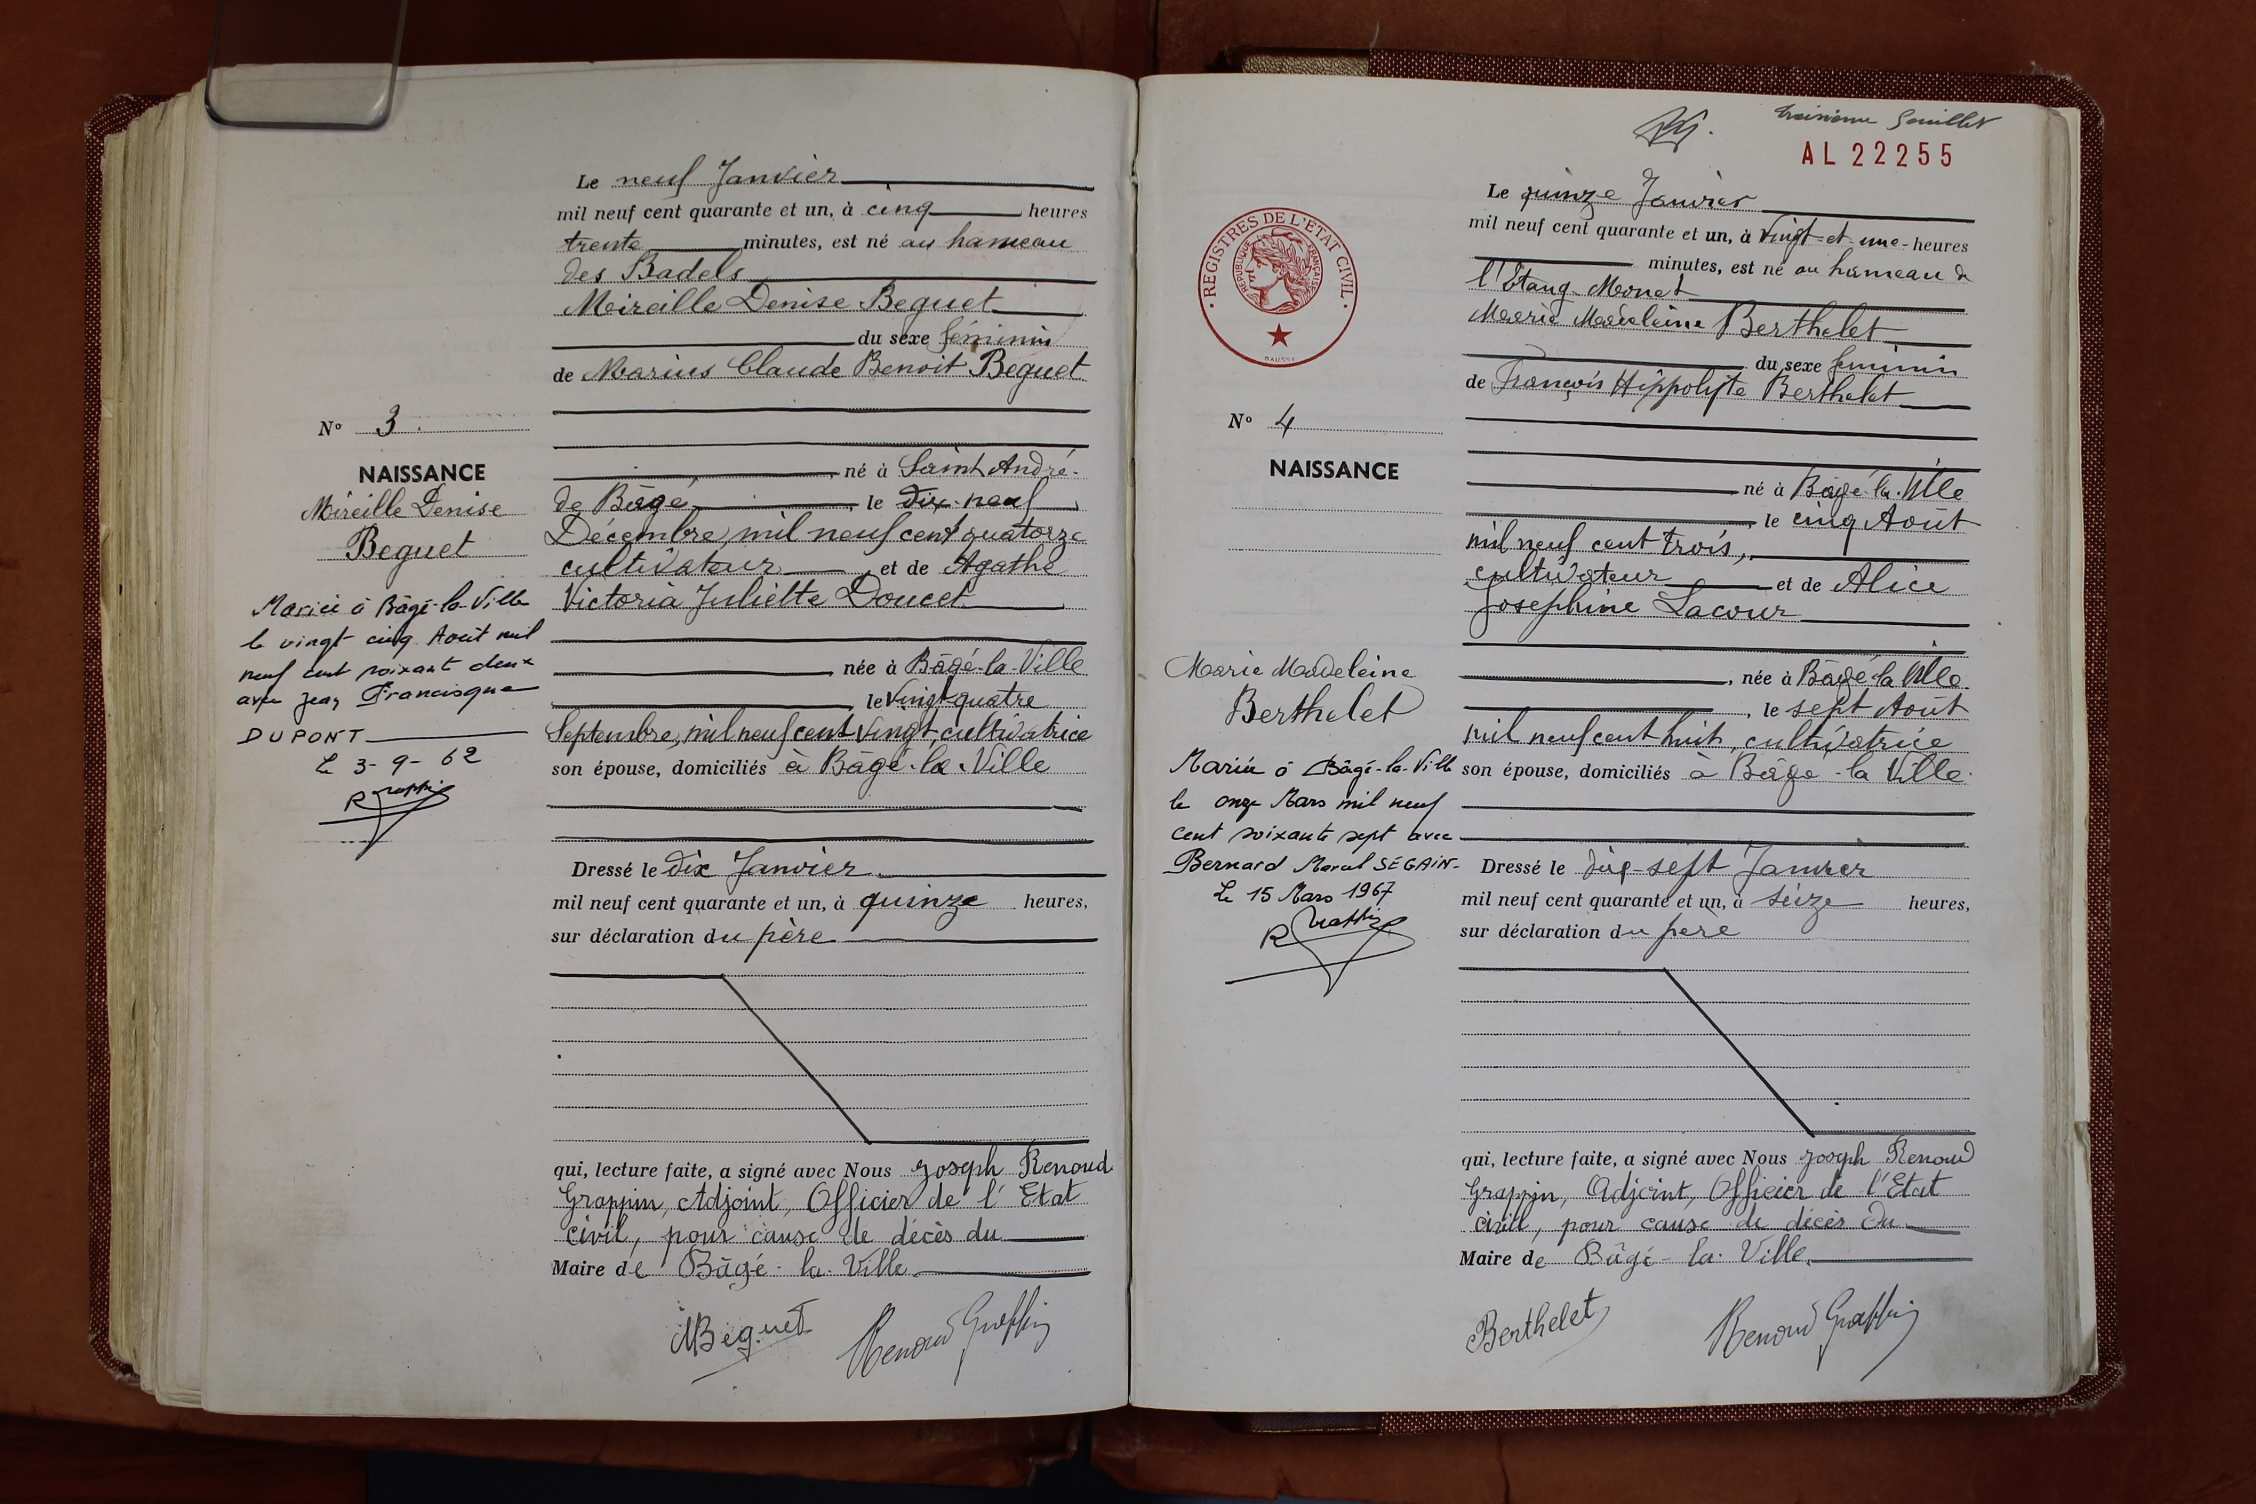 Le neuf Janvier
mil neuf cent quarante et un, à cinq heures
trente minutes, est né au hameau
des Badels
Mireille Denise Beguet
du sexe féminin
de Marius Claude Benoit Beguet
N° 3
né à Saint André-
NAISSANCE
Mireille Denise
Beguet
de Bâgé le dix-neuf
Décembre, mil neuf cent quatorze
cultivateur et de Agathe
Victoria Juliette Doucet
Mariée à Bâgé-la-Ville
le vingt cinq Août mil
neuf cent soixante deux
avec Jean Francisque
DUPONT
Le 3-9-62
née à Bâgé-la-Ville
le vingt quatre
Septembre, mil neuf cent vingt, cultivatrice
son épouse, domiciliés à Bâgé-la-Ville
Dressé le dix Janvier
mil neuf cent quarante et un, à quinze heures,
sur déclaration du père
qui, lecture faite, a signé avec Nous Joseph Renoud
Grappin, Adjoint, Officier de l'Etat
civil, pour cause de décès du
Maire de Bâgé-la-Ville
MBeguet Renoud Grappin
troisième feuillet
AL 22255
REGISTRES DE L'ETAT CIVIL
REPUBLIQUE FRANÇAISE
Le quinze Janvier
mil neuf cent quarante et un, à vingt-et-une heures
minutes, est né au hameau de
l'Etang Monet
Marie Madeleine Berthelet
du sexe féminin
de François Hippolyte Berthelet
N° 4
NAISSANCE
né à Bâgé-la-Ville
le cinq Août
mil neuf cent trois,
cultivateur et de Alice
Josephine Lacour
Marie Madeleine
Berthelet
née à Bâgé-la-Ville
, le sept Août
mil neuf cent huit, cultivatrice
son épouse, domiciliés à Bâgé-la-Ville
Mariée à Bâgé-la-Ville
le onze Mars mil neuf
cent soixante sept avec
Bernard Marcel SEGAIN-
Le 15 Mars 1967
Dressé le dix-sept Janvier
mil neuf cent quarante et un, à seize heures,
sur déclaration du père
qui, lecture faite, a signé avec Nous Joseph Renoud
Grappin, Adjoint, Officier de l'Etat
civil, pour cause de décès du
Maire de Bâgé-la-Ville.
Berthelet Renoud Grappin